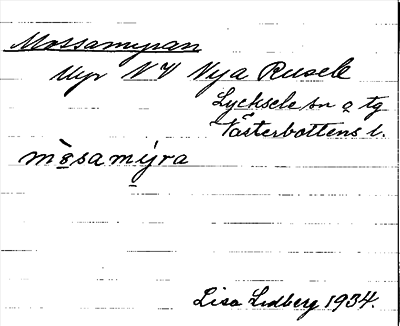 Mossamyran
Myr NV Nya Rusele
Lycksele sn o tg
Västerbottens l.
mòsamýra
Lisa Lidberg 1934.